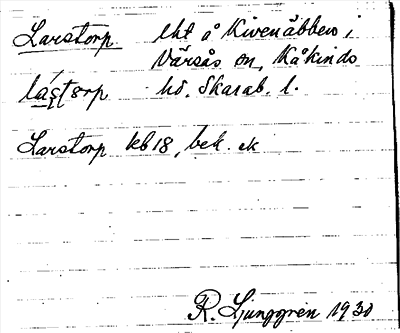 Larstorp lht å Kivenäbben i
Värsås sn, Kåkinds
lástorp hd, Skarab. l.
Larstorp kb 18, bek. ek
R. Ljunggren 1930